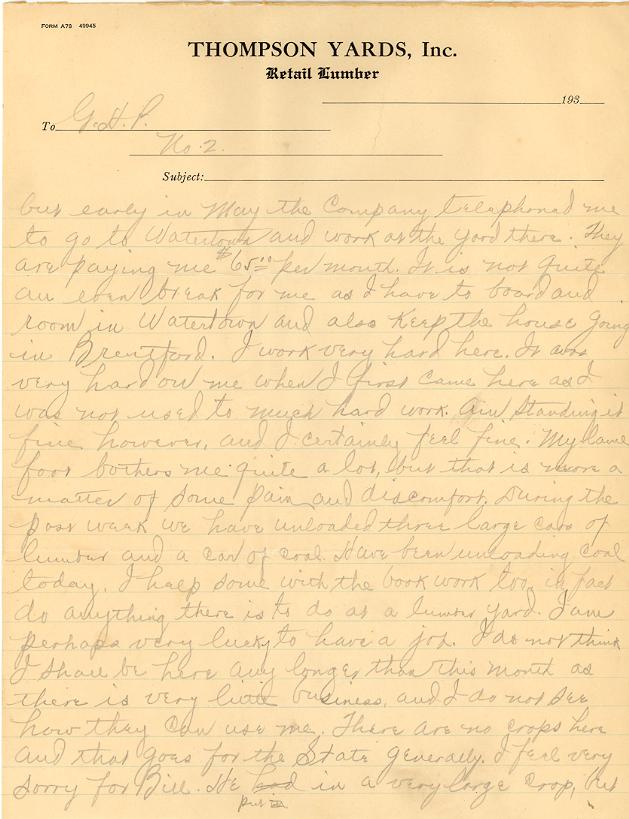 FORM A73 49945
THOMPSON YARDS, Inc.
Retail Lumber
193
To G.H.P.
No. 2.
Subject:
but early in May the Company telephoned me
to go to Watertown and work at the yard there. They
are paying me $65.00 per month. It is not quite
an even break for me as I have to board and
room in Watertown and also keep the house going
in Brentford. I work very hard here. It was
very hard on me when I first came here as I
was not used to much hard work. Am standing it
fine however, and I certainly feel fine. My lame
foot bothers me quite a lot, but that is more a
matter of some pain and discomfort. During the
past week we have unloaded three large cars of
lumber and a car of coal. Have been unloading coal
today. I help some with the book work too, in fact
do anything there is to do at a lumber yard. I am
perhaps very lucky to have a job. I do not think
I shall be here any longer than this month as
there is very little business, and I do not see
how they can use me. There are no crops here
and that goes for the State generally. I feel very
sorry for Bill. He had in a very large crop, but
put